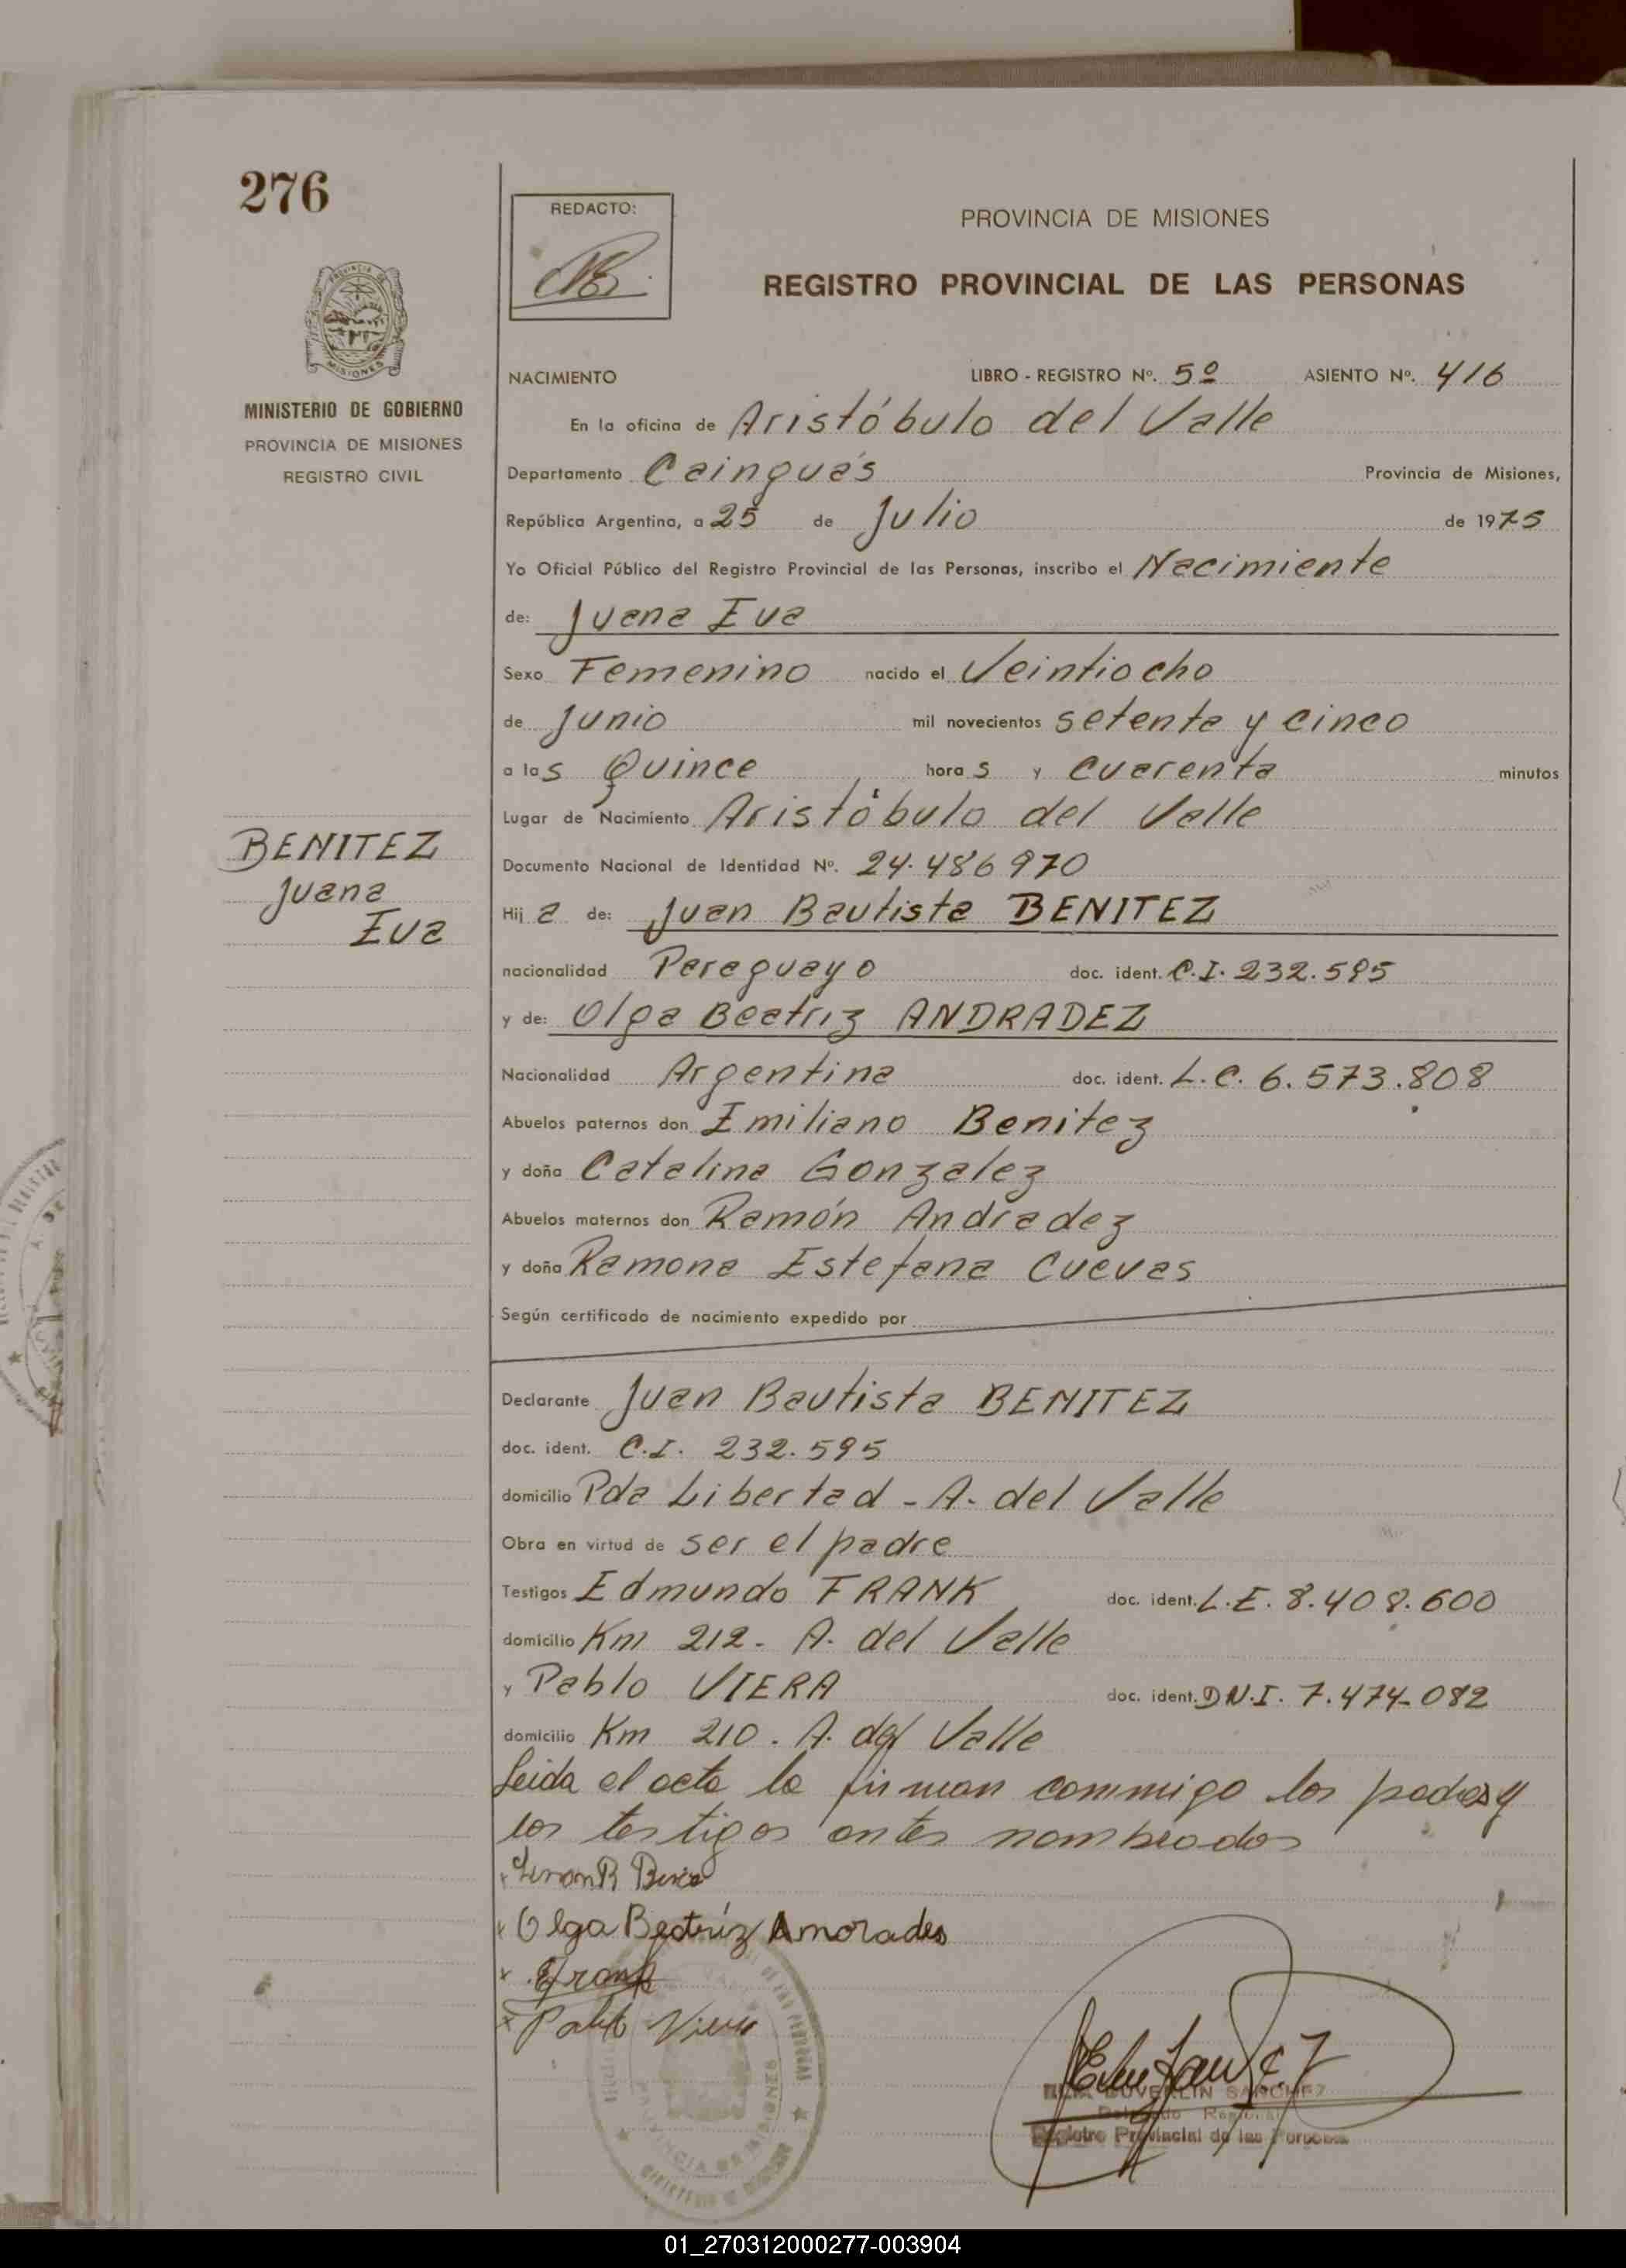 276
REDACTO:
PROVINCIA DE MISIONES
REGISTRO PROVINCIAL DE LAS PERSONAS
MINISTERIO DE GOBIERNO
PROVINCIA DE MISIONES
REGISTRO CIVIL
NACIMIENTO LIBRO - REGISTRO Nº. 5º ASIENTO Nº. 416
En la oficina de Aristóbulo del Valle
Departamento Cainguás Provincia de Misiones,
República Argentina, a 25 de Julio de 1975
Yo Oficial Público del Registro Provincial de las Personas, inscribo el Nacimiente
de: Juana Eva
Sexo Femenino nacido el Veintiocho
de Junio mil novecientos setenta y cinco
a las Quince horas y cuarenta minutos
Lugar de Nacimiento Aristóbulo del Valle
BENITEZ
Juana
Eva
Documento Nacional de Identidad Nº. 24.486970
Hija de: Juan Bautista BENITEZ
nacionalidad Paraguayo doc. ident. C.I. 232.595
y de: Olga Beatriz ANDRADEZ
Nacionalidad Argentina doc. ident. L.C. 6.573.808
Abuelos paternos don Emiliano Benitez
y doña Catalina Gonzalez
Abuelos maternos don Ramón Andradez
y doña Ramona Estefana Cuevas
Según certificado de nacimiento expedido por
Declarante Juan Bautista BENITEZ
doc. ident. C.I. 232.595
domicilio Pda Libertad - A. del Valle
Obra en virtud de ser el padre
Testigos Edmundo FRANK doc. ident. L.E. 8.408.600
domicilio Km 212 - A. del Valle
y Pablo VIERA doc. ident. D.N.I. 7.474.082
domicilio Km 210 . A. del Valle
Leida el acta la firman conmmigo los padres y
los testigos antes nombrados
Olga Beatríz Amorades
E Frank
Pablo Viera
SANCHEZ
Delegado Regional
Registro Provincial de las Personas
01_270312000277-003904